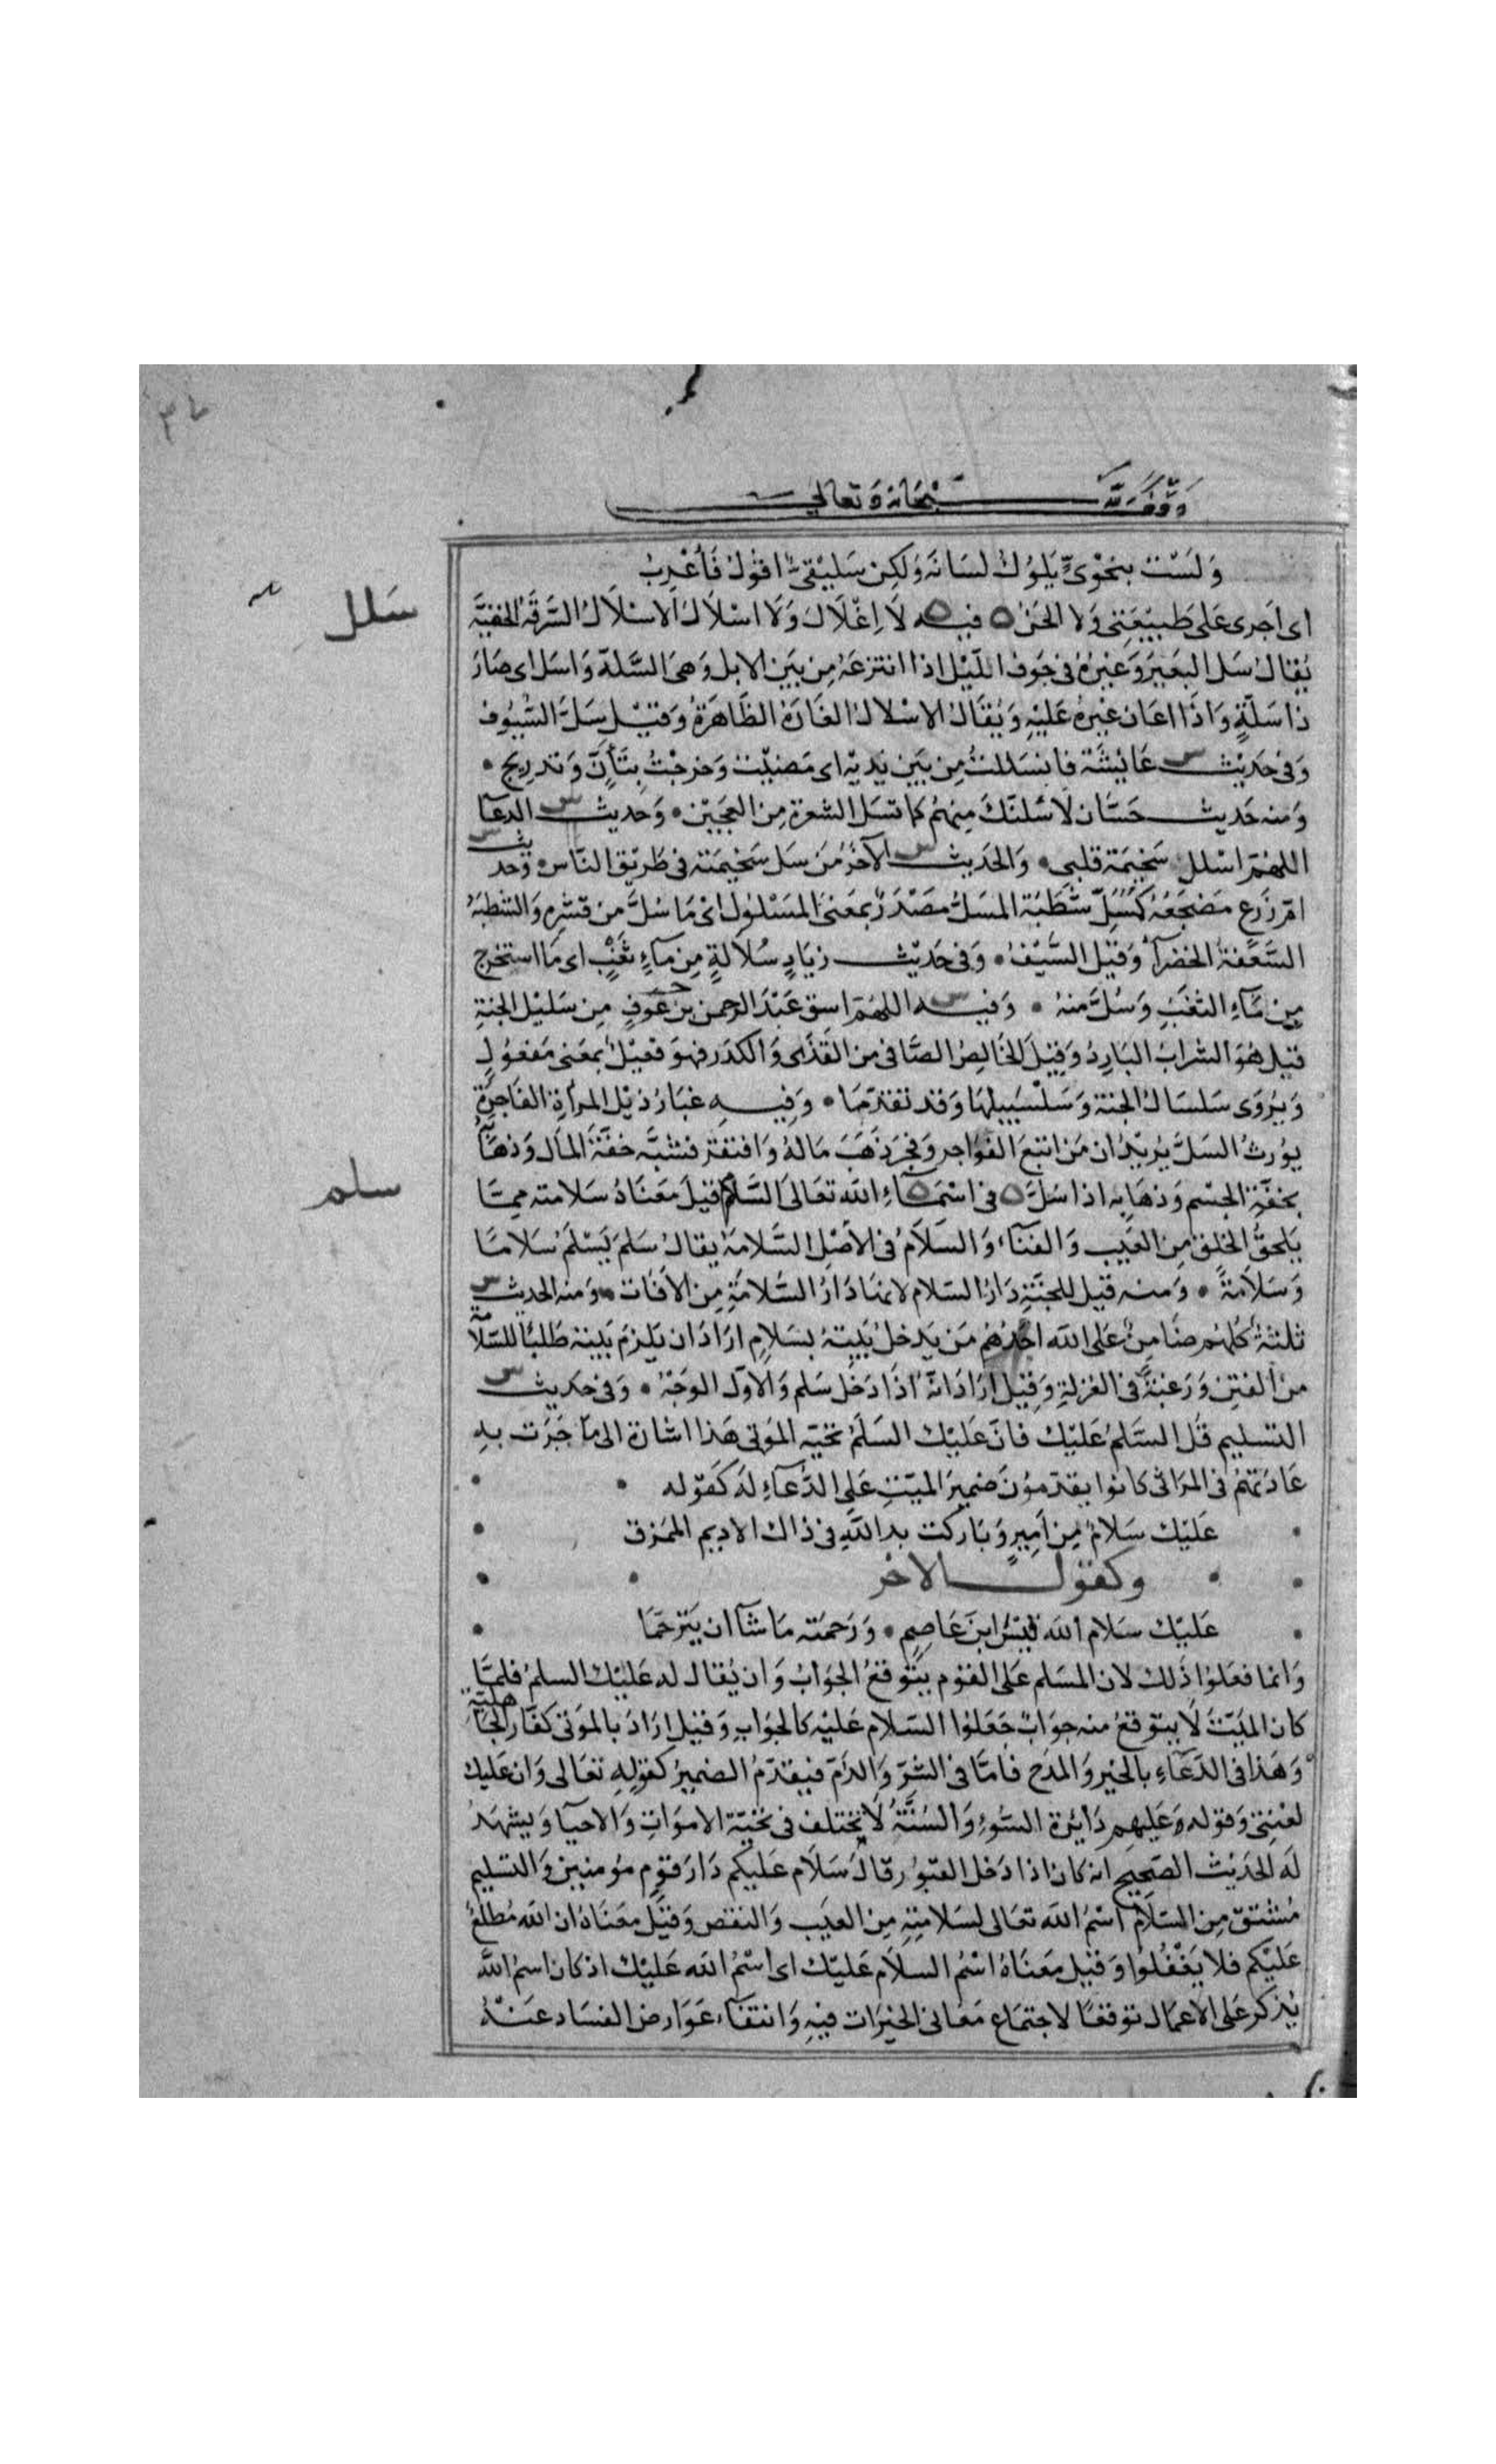 وقف لله سبحانه وتعالى
ولست بنحوي يلوك لسانه ولكن سليقي اقول فأعرب
اى اجرى على طبيعتى ولا الحن ه فيه لا اغلال ولا اسلال الاسلال السرقة الخفية
سلل
يقال سل البعير وغيره فى جوف الليل اذا انتزعه من بين الابل وهى السلة واسل اى صار
ذا سلة واذا اعان غيره عليه ويقال الاسلال الغارة الظاهرة وقيل سل السيوف
وفى حديث عائشة فانسللت من بين يديه اى مضيت وخرجت بتأن وتدريج •
ومنه حديث حسان لاسلنك منهم كما تسل الشعرة من العجين • وحديث الدعآ
اللهم اسلل سخيمة قلبى • والحديث الآخر من سل سخيمته فى طريق الناس • وحديث
ام زرع مضجعه كمسل شطبة المسل مصدر بمعنى المسلول اى ما سل من قشره والشطبة
السعفة الخضرآ وقيل السيف • وفى حديث زياد سلالة من مآء ثغب اى ما استخرج
من مآء الثغب وسل منه • وفيه اللهم اسق عبد الرحمن بن عوف من سليل الجنة
قيل هو الشراب البارد وقيل الخالص الصافى من القذى والكدر فهو فعيل بمعنى مفعول
ويروى سلسال الجنة وسلسبيلها وقد تقدما • وفيه غبار ذيل المرأة الفاجرة
يورث السل يريد ان من اتبع الفواجر وفجر ذهب ماله وافتقر فشبه خفة المال وذهابه
بخفة الجسم وذهابه اذا سل ه فى اسمآء الله تعالى السلام قيل معناه سلامته مما
سلم
يلحق الخلق من العيب والفنآء والسلام فى الاصل السلامة يقال سلم يسلم سلاما
وسلامة • ومنه قيل للجنة دار السلام لانها دار السلامة من الافات • ومنه الحديث
ثلثة كلهم ضامن على الله احدهم من يدخل بيته بسلام اراد ان يلزم بيته طلبا للسلامة
من الفتن ورغبة فى العزلة وقيل اراد انه اذا دخل سلم والاول الوجه • وفى حديث
التسليم قل السلم عليك فان عليك السلم تحية الموتى هذا اشارة الى ما جرت به
عادتهم فى المراثى كانوا يقدمون ضمير الميت على الدعآء له كقوله •
عليك سلام من امير وباركت يد الله فى ذاك الاديم الممزق
وكقول الاخر
عليك سلام الله قيس ابن عاصم • ورحمته ما شآ ان يترحما
وانما فعلوا ذلك لان المسلم على القوم يتوقع الجواب وان يقال له عليك السلم فلما
كان الميت لا يتوقع منه جواب جعلوا السلام عليه كالجواب وقيل اراد بالموتى كفار الجاهلية
وهذا فى الدعآء بالخير والمدح فاما فى الشر والذم فيقدم الضمير كقوله تعالى وان عليك
لعنتى وقوله وعليهم دايرة السوء والسنة لا تختلف فى تحية الاموات والاحيآ ويشهد
له الحديث الصحيح انه كان اذا دخل القبور قال سلام عليكم دار قوم مومنين والتسليم
مشتق من السلام اسم الله تعالى لسلامته من العيب والنقص وقيل معناه ان الله مطلع
عليكم فلا يغفلوا وقيل معناه اسم السلام عليك اى اسم الله عليك اذ كان اسم الله
يذكر على الاعمال توقعا لاجتماع معانى الخيرات فيه وانتفآء عوارض الفساد عنه